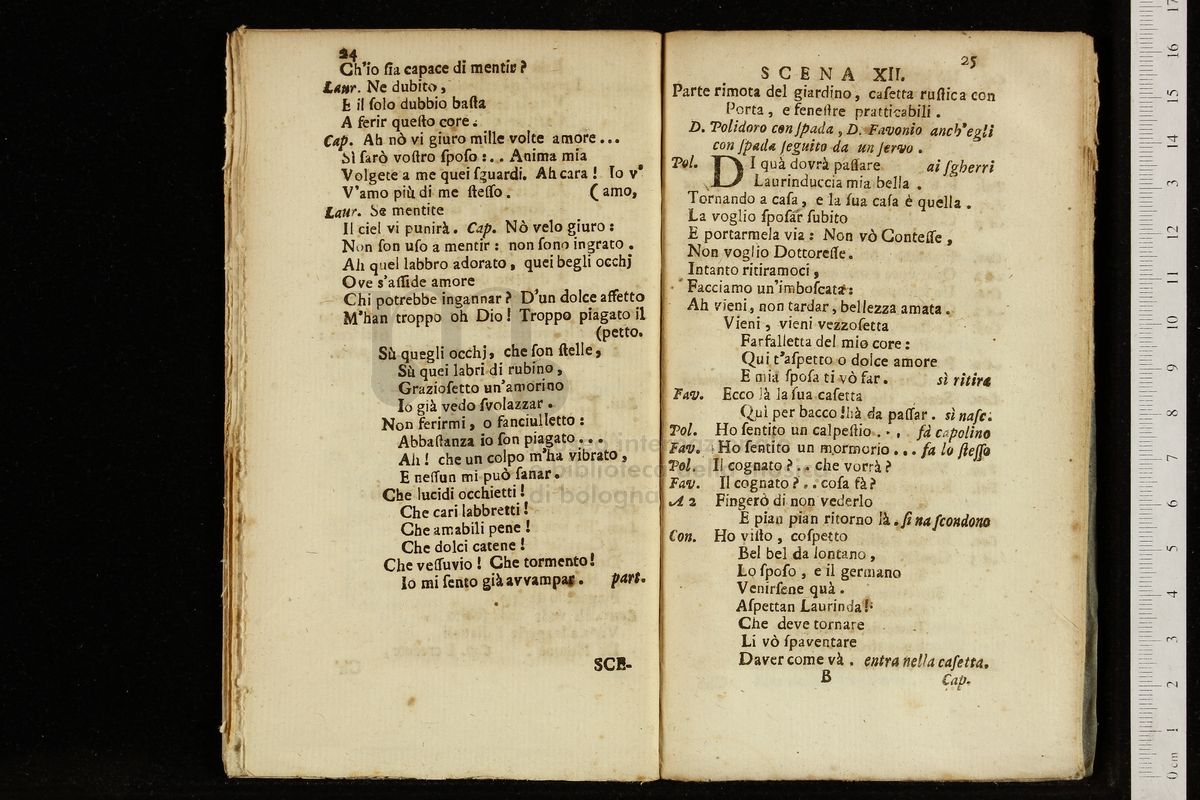 24
Ch'io ſia capace di mentir?
Laur. Ne dubito,
E il ſolo dubbio baſta
A ferir queſto core.
Cap. Ah nò vi giuro mille volte amore...
Sì ſarò voſtro ſpoſo:.. Anima mia
Volgete a me quei ſguardi. Ah cara! Io v'
V'amo più di me ſteſſo. (amo,
Laur. Se mentite
Il ciel vi punirà. Cap. Nò velo giuro:
Non ſon uſo a mentir: non ſono ingrato.
Ah quel labbro adorato, quei begli occhj
Ove s'aſſide amore
Chi potrebbe ingannar? D'un dolce affetto
M'han troppo oh Dio! Troppo piagato il
(petto.
Sù quegli occhj, che ſon ſtelle,
Sù quei labri di rubino,
Grazioſetto un'amorino
Io già vedo ſvolazzar.
Non ferirmi, o fanciulletto:
Abbaſtanza io ſon piagato...
Ah! che un colpo m'ha vibrato,
E neſſun mi può ſanar.
Che lucidi occhietti!
Che cari labbretti!
Che amabili pene!
Che dolci catene!
Che veſſuvio! Che tormento!
Io mi ſento già avvampar. part.
SCE-
25
SCENA XII.
Parte rimota del giardino, caſetta ruſtica con
Porta, e feneſtre pratticabili.
D. Polidoro con ſpada, D. Favonio anch'egli
con ſpada ſeguito da un ſervo.
Pol. DI quà dovrà paſſare ai ſgherri
Laurinduccia mia bella.
Tornando a caſa, e la ſua caſa è quella.
La voglio ſpoſar ſubito
E portarmela via: Non vò Conteſſe,
Non voglio Dottoreſſe.
Intanto ritiramoci,
Facciamo un'imboſcata:
Ah vieni, non tardar, bellezza amata.
Vieni, vieni vezzoſetta
Farfalletta del mio core:
Qui t'aſpetto o dolce amore
E mia ſpoſa ti vò far. sì ritira
Fav. Ecco là la ſua caſetta
Quì per bacco! hà da paſſar. sì naſc.
Pol. Ho ſentito un calpeſtio... fà capolino
Fav. Ho ſentito un mormorio... fa lo ſteſſo
Pol. Il cognato?.. che vorrà?
Fav. Il cognato?.. coſa fà?
A 2 Fingerò di non vederlo
E pian pian ritorno là. ſi naſcondono
Con. Ho viſto, coſpetto
Bel bel da lontano,
Lo ſpoſo, e il germano
Venirſene quà.
Aſpettan Laurinda!
Che deve tornare
Li vò ſpaventare
Daver come và. entra nella caſetta.
B Cap.
museo internazionale
e biblioteca della musica
di bologna
0 cm 1 2 3 4 5 6 7 8 9 10 11 12 13 14 15 16 17